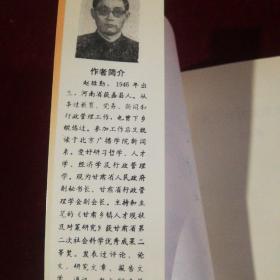 作者简介
赵桂勤，1946年出
生，河南省获嘉县人。从
事过教育、党务、新闻和
行政管理工作，也曾下乡
锻炼过。参加工作后又就
读于北京广播学院新闻
系。爱好研习哲学、人才
学、经济学及行政管理
学。现为甘肃省人民政府
副秘书长、甘肃省行政管
理学会副会长。主持和主
笔的《甘肃乡镇人才现状
及对策研究》获甘肃省第
二次社会科学优秀成果二
等奖。发表过评论、论
文、研究文章、报告文